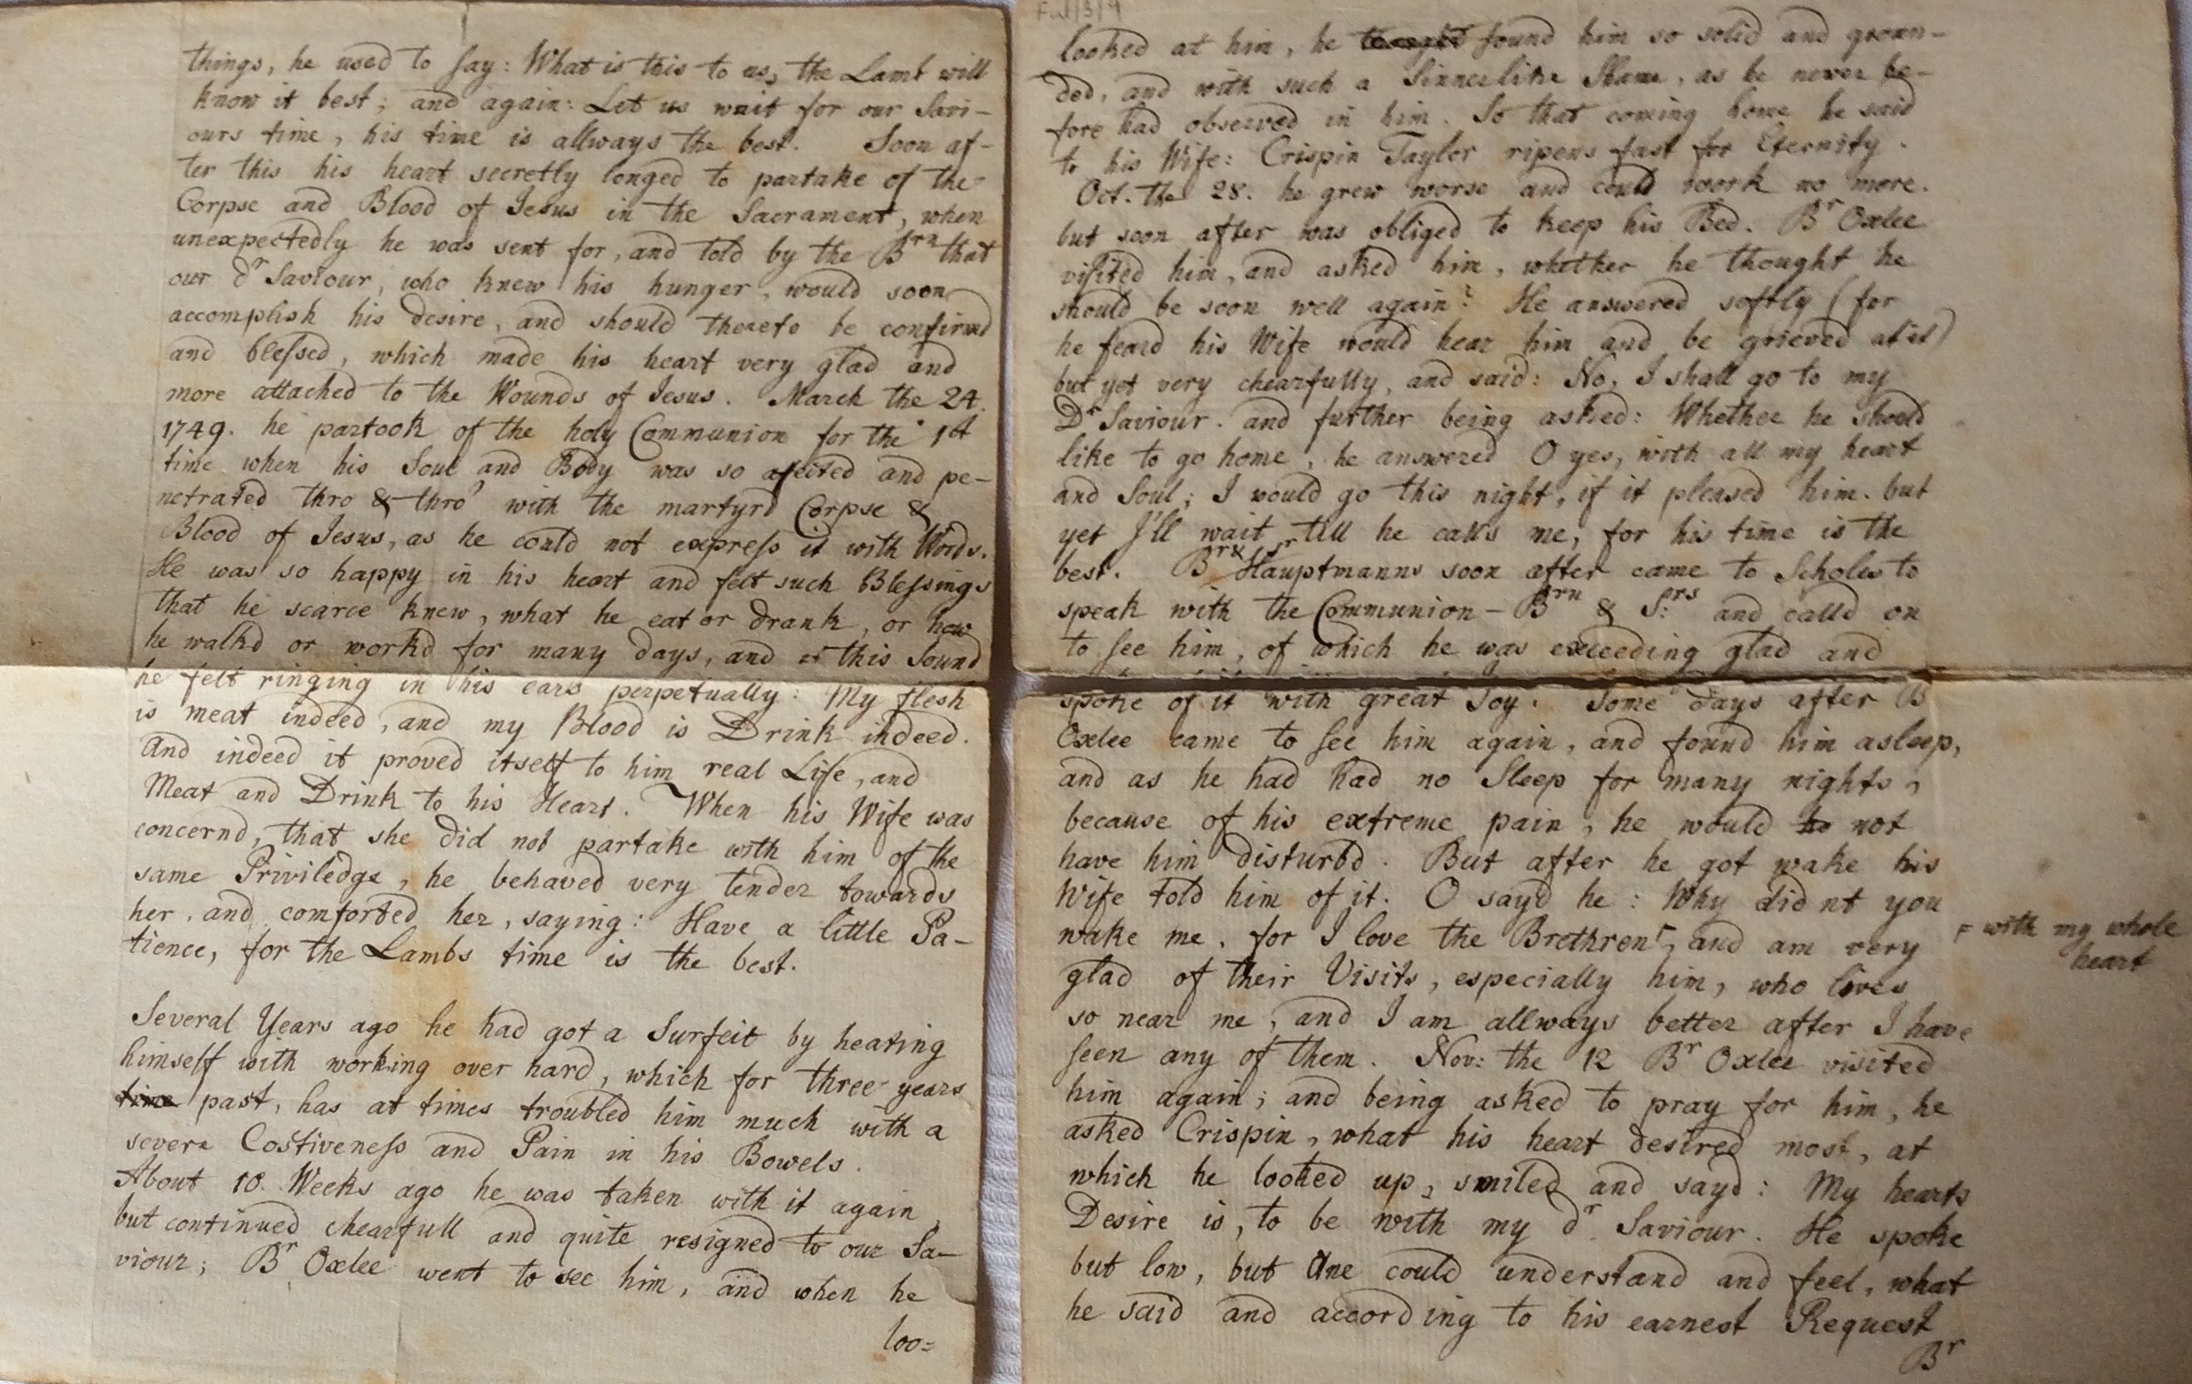 things, he used to say: What is this to us, the Lamb will
know it best; and again: Let us wait for our Savi-
ours time, his time is allways the best. Soon af-
ter this his heart secretly longed to partake of the
Corpse and Blood of Jesus in the Sacrament, when
unexpectedly he was sent for, and told by the Brn that
our dr Saviour, who knew his hunger, would soon
accomplish his desire, and should thereto be confirmd
and blessed, which made his heart very glad and
more attached to the Wounds of Jesus. March the 24.
1749. he partook of the holy Communion for the 1st
time when his Soul and Body was so afected and pe-
netrated thro & thro' with the martyrd Corpse &
Blood of Jesus, as he could not express it with Words.
He was so happy in his heart and felt such Blessings
that he scarce knew, what he eat or drank, or how
he walkd or workd for many days, and this Sound
he felt ringing in his ears perpetually: My flesh
is meat indeed, and my Blood is Drink indeed.
And indeed it proved itself to him real Life, and
Meat and Drink to his Heart. When his Wife was
concernd, that she did not partake with him of the
same Priviledge, he behaved very tender towards
her, and comforted her, saying: Have a little Pa-
tience, for the Lambs time is the best.
Several Years ago he had got a Surfeit by heating
himself with working over hard, which for three years
time past, has at times troubled him much with a
severe Costiveness and Pain in his Bowels.
About 10 Weeks ago he was taken with it again
but continued chearfull and quite resigned to our Sa-
viour; Br Oxlee went to see him, and when he
loo=
looked at him, he thought found him so solid and groun-
ded, and with such a Sinnerlike Shame, as he never be-
fore had observed in him. So that coming home he said
to his Wife: Crispin Taylor ripens fast for Eternity.
Oct. the 28. he grew worse and could work no more.
but soon after was obliged to keep his Bed. Br Oxlee
visited him, and asked him, whether he thought he
should be soon well again? He answered softly (for
he feard his Wife would hear him and be grieved at it)
but yet very chearfully, and said: No, I shall go to my
Dr Saviour. and further being asked: Whether he should
like to go home, he answered O yes, with all my heart
and Soul; I would go this night, if it pleased him. but
yet I'll wait till he calls me, for his time is the
best. Br & Sr Hauptmanns soon after came to Scholes to
speak with the Communion- Brn & S:rs and calld on
to see him, of which he was exceeding glad and
spoke of it with great Joy. Some days after B
Oxlee came to see him again, and found him asleep,
and as he had had no Sleep for many nights,
because of his extreme pain, he would not
have him disturbd. But after he got wake his
Wife told him of it. O sayd he: Why did nt you
wake me, for I love the Brethren F, and am very
F with my whole
heart
glad of their Visits, especially him, who lives
so near me, and I am allways better after I have
seen any of them. Nov: the 12 Br Oxlee visited
him again; and being asked to pray for him, he
asked Crispin, what his heart desired most, at
which he looked up, smiled and sayd: My hearts
Desire is, to be with my dr Saviour. He spoke
but low, but One could understand and feel, what
he said and according to his earnest Request
Br